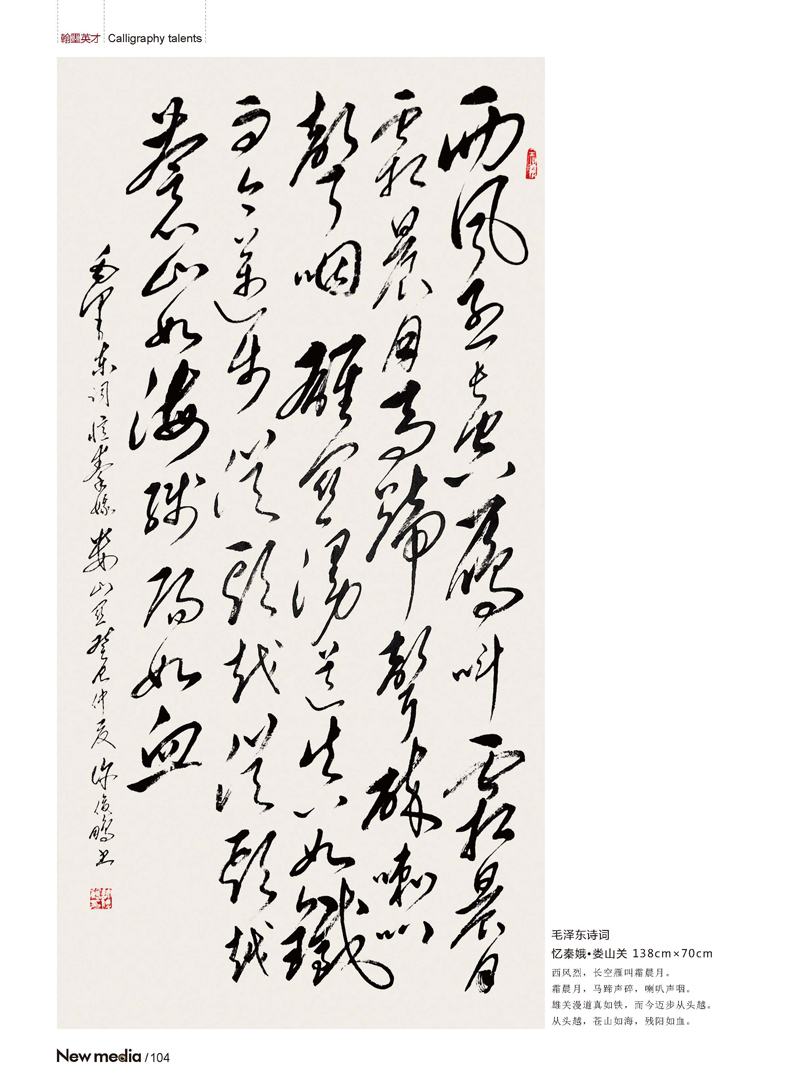 翰墨英才 Calligraphy talents
西風烈長空雁叫霜晨月
霜晨月馬蹄聲碎喇叭
聲咽雄關漫道真如鐵
而今邁步從頭越從頭越
蒼山如海殘陽如血
毛澤東詞憶秦娥婁山關癸巳仲夏俊鵬書
毛泽东诗词
忆秦娥•娄山关 138cm×70cm
西风烈，长空雁叫霜晨月。
霜晨月，马蹄声碎，喇叭声咽。
雄关漫道真如铁，而今迈步从头越。
从头越，苍山如海，残阳如血。
New media / 104